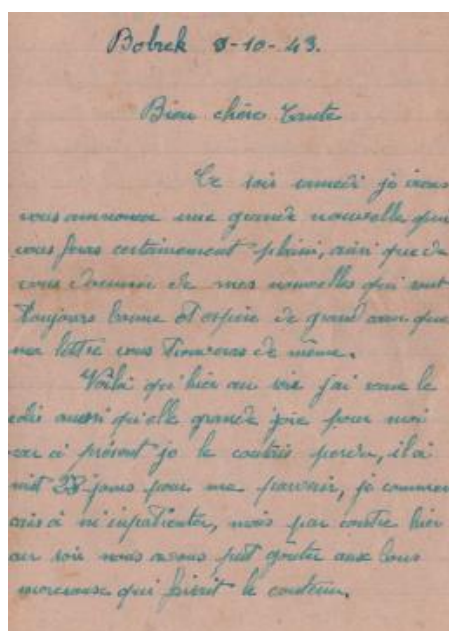 Bobrek 9-10-43.
Bien chère Tante
Ce soir samedi je viens
vous annoncer une grande nouvelle, qui
vous feras certainement plaisir, ainsi que de
vous donner de mes nouvelles qui sont
toujours bonne et espère de grand cœur que
ma lettre vous trouveras de même.
Voilà qu'hier au soir j'ai reçue le
colis aussi qu'elle grande joie pour moi
car à présent je le contais perdu, il a
mit 23 jours pour me parvenir, je commen
cais à m'inpatienter, mais par contre hier
au soir nous avons put goûter aux bons
morceaux qui faisait le contenu.